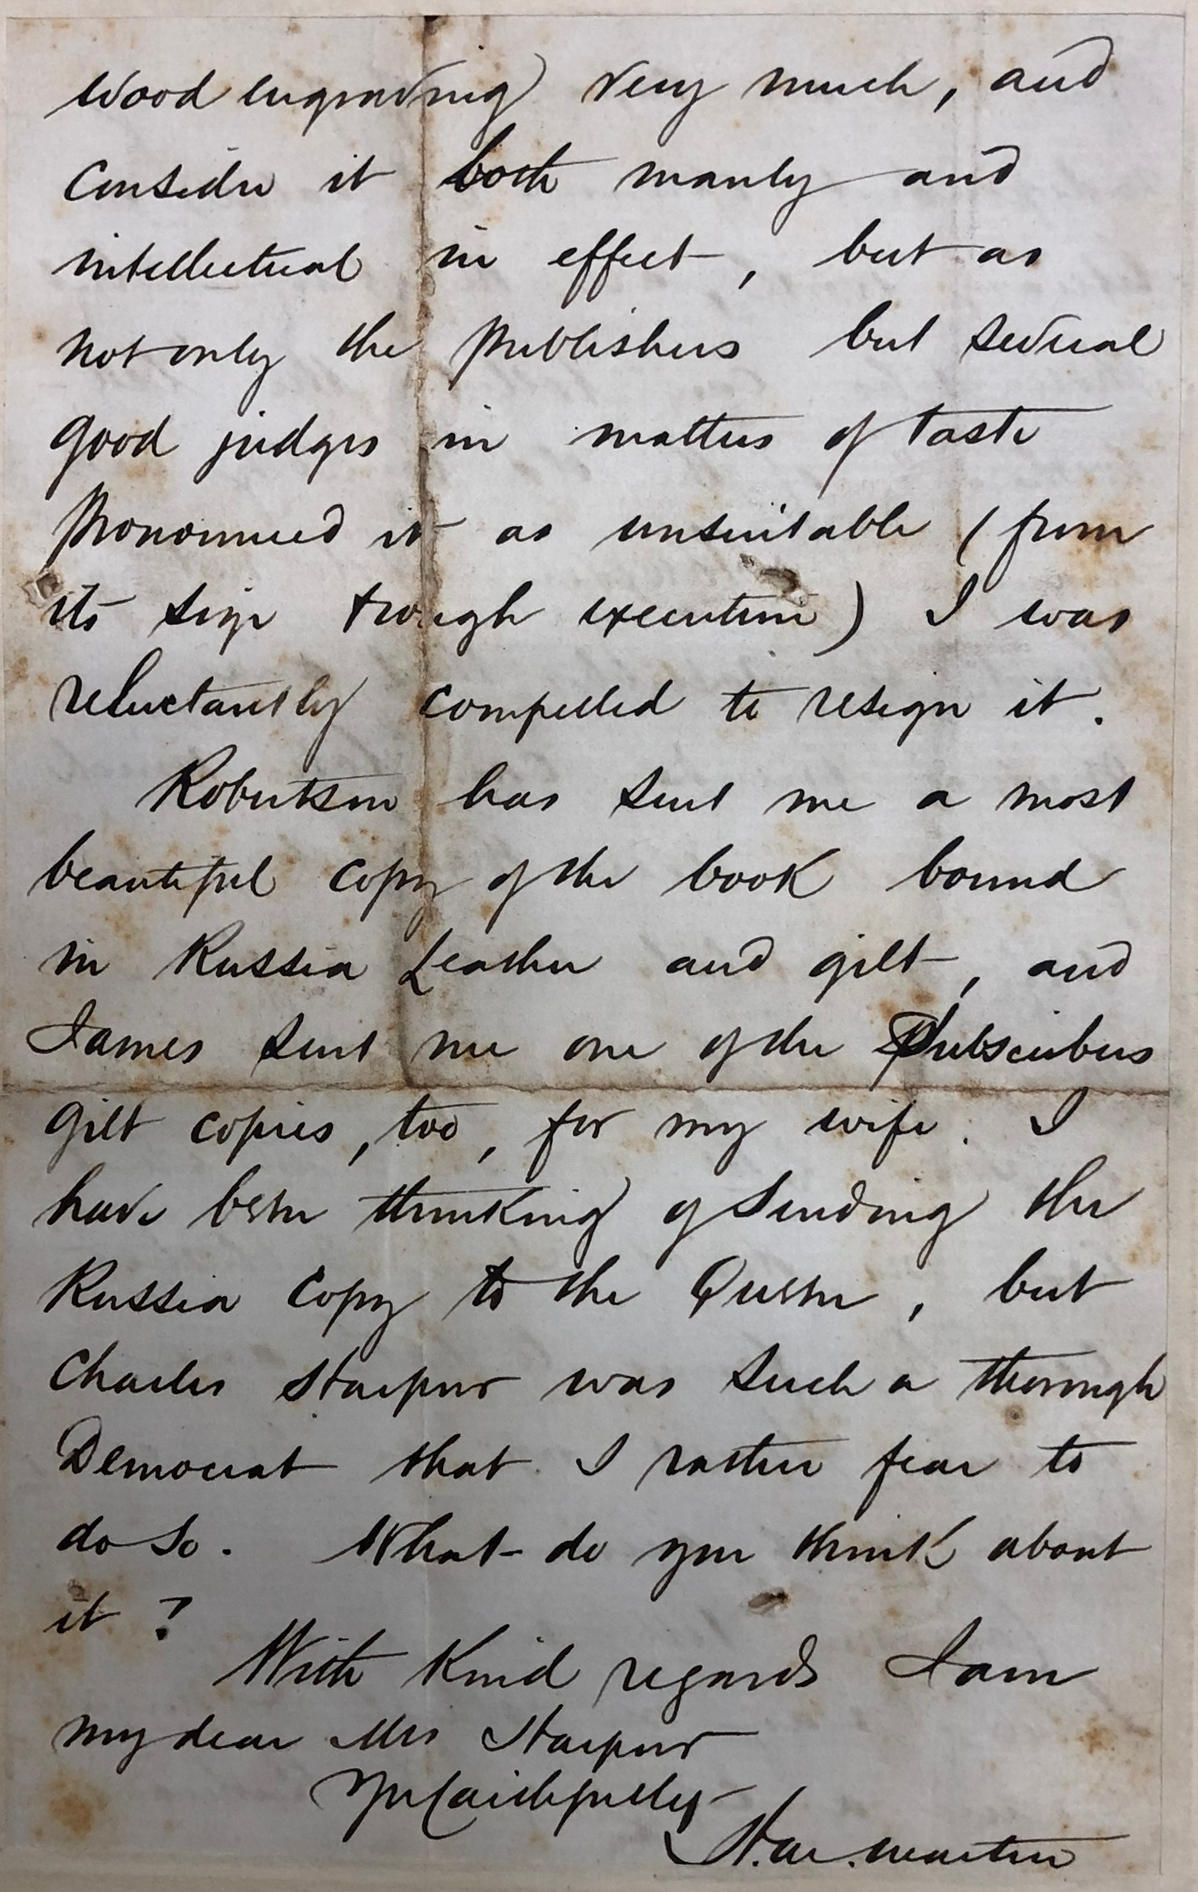 wood engraving very much, and
consider it both manly and
intellectual in effect, but as
not only the publishers but several
good judges in matters of taste
pronounced it as unsuitable (from
its size & rough execution) I was
reluctantly compelled to resign it.
Robertson has sent me a most
beautiful copy of the book bound
in Russia Leather and gilt, and
James sent me one of the Subscribers
gilt copies, too, for my wife. I
have been thinking of sending the
Russia copy to the Queen, but
Charles Harpur was such a thorough
Democrat that I rather fear to
do so. What do you think about
it?
With Kind regards I am
my dear Mrs Harpur
Yrs faithfully
H. W. Martin